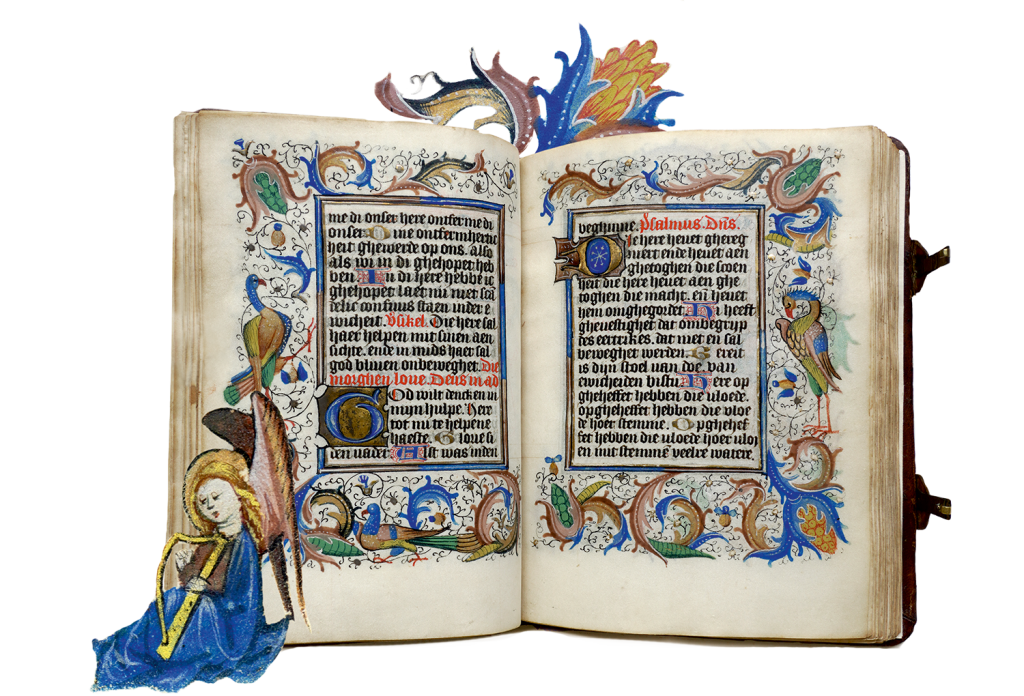 me di onser here ontferme di
onser. O ine ontfermhertic
heit ghewerde op ons. also
als wi in di ghehopet heb
ben. In di here hebbe ic
ghehopet laet mi niet scā
delic confuus staen inder e
wicheit. Vsikel. Die here sal
haer helpen mit sinen aen
sichte. ende in mids haer sal
god bliuen onbeweghet. Die
morghen loue. Deus in ad
God wilt dencken in
mijn hulpe. Here
tot mi te helpene
haeste. G loue si
den vader. Alst was inden
beghinne. Psalmus. Dn̄s.
Die here heuet ghereg
niert ende heuet aen
ghetoghen die scoen
heit die here heuet aen ghe
toghen die macht. en̄ heuet
hem omghegordet. H i heeft
gheuestighet dat ombegryp
ses eertrikes. dat niet en sal
beweghet werden. G ereit
is dijn stoel van doe. van
ewicheiden bistu. H ere op
gheheffet hebben die vloede.
opgheheffet hebben die vloe
de hoer stemme. O pghehef
fet hebben die vloede hoer vloy
en mit stemmē veelre watere.